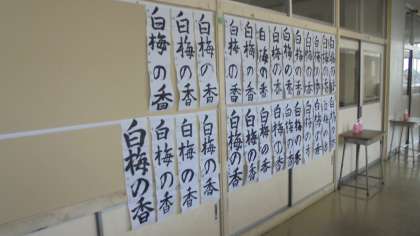 白梅の香
白梅の香
白梅の香
白梅の香
白梅の香
白梅の香
白梅の香
白梅の香
白梅の香
白梅の香
白梅の香
白梅の香
白梅の香
白梅の香
白梅の香
白梅の香
白梅の香
白梅の香
白梅の香
白梅の香
白梅の香
白梅の香
白梅の香
白梅の香
白梅の香